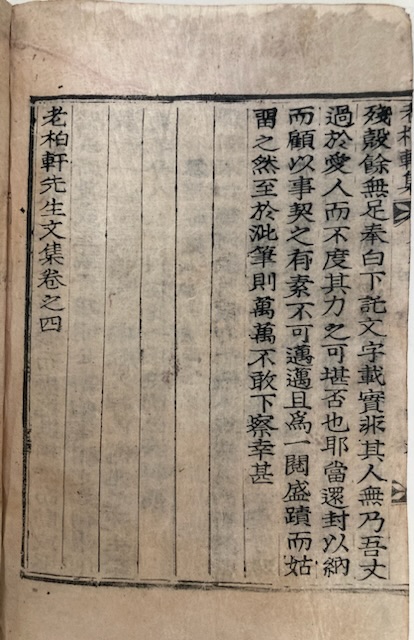 老柏軒集
殘骸餘無足奉白下託文字載實非其人無乃吾丈
過於愛人而不度其力之可堪否也耶當還封以納
而顧以事契之有素不可邁邁且爲一閱盛蹟而姑
畱之然至於泚筆則萬萬不敢下察幸甚
老柏軒先生文集卷之四